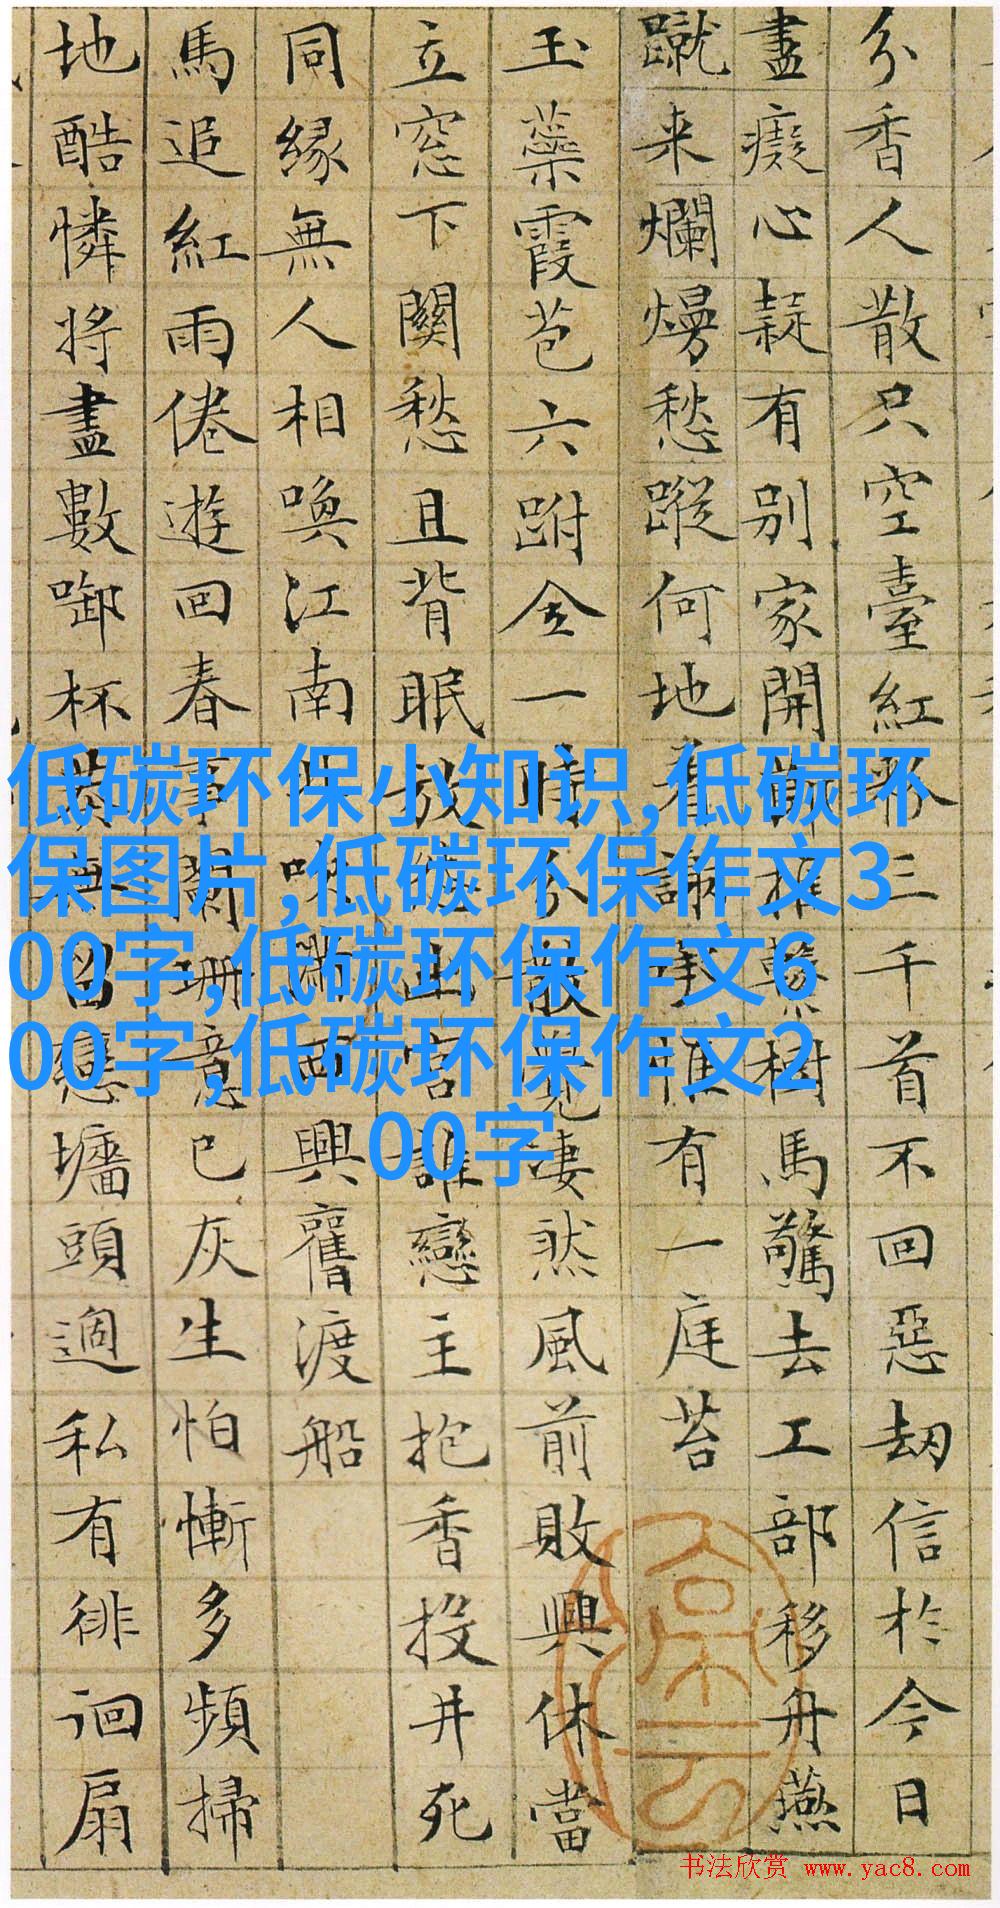 分香人散只空臺紅粉三千首不回惡劫信於今日
盡癡心疑有別家開節推繫樹馬驚去工部移舟燕
蹴来爛熳愁蹤何地着謝承惟有一庭苔
玉蘂霞苞六跗全一時分散覓凄然風前敗興休當
立窓下關愁且背眠放宮誰戀主抱香投井死
同緣無人相喚江南吹滿西興舊渡船
馬追紅雨倦遊回春事闌珊意已灰生怕慚多頻掃
地酷憐將盡數啣杯戀墻頭過私有徘徊扇
低碳环保小知识,低碳环
保图片,低碳环保作文3
00字,低碳环保作文6
00字,低碳环保作文2
00字
书法欣赏 www.yac8.com